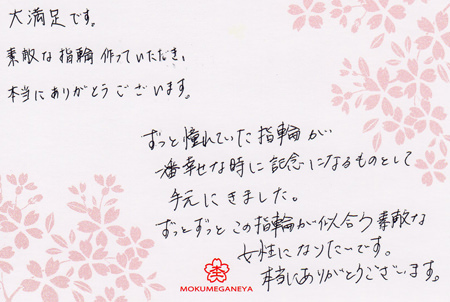 大満足です。
素敵な指輪作っていただき、
本当にありがとうございます。
ずっと憧れていた指輪が
一番幸せな時に記念になるものとして
手元にきました。
ずっとずっとこの指輪が似合う素敵な
女性になりたいです。
本当にありがとうございます。
杢
MOKUMEGANEYA